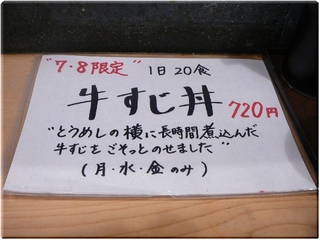 "7・8限定" 1日20食
牛すじ丼 720円
"とうめしの横に長時間煮込んだ
牛すじをごそっとのせました"
(月・水・金のみ)